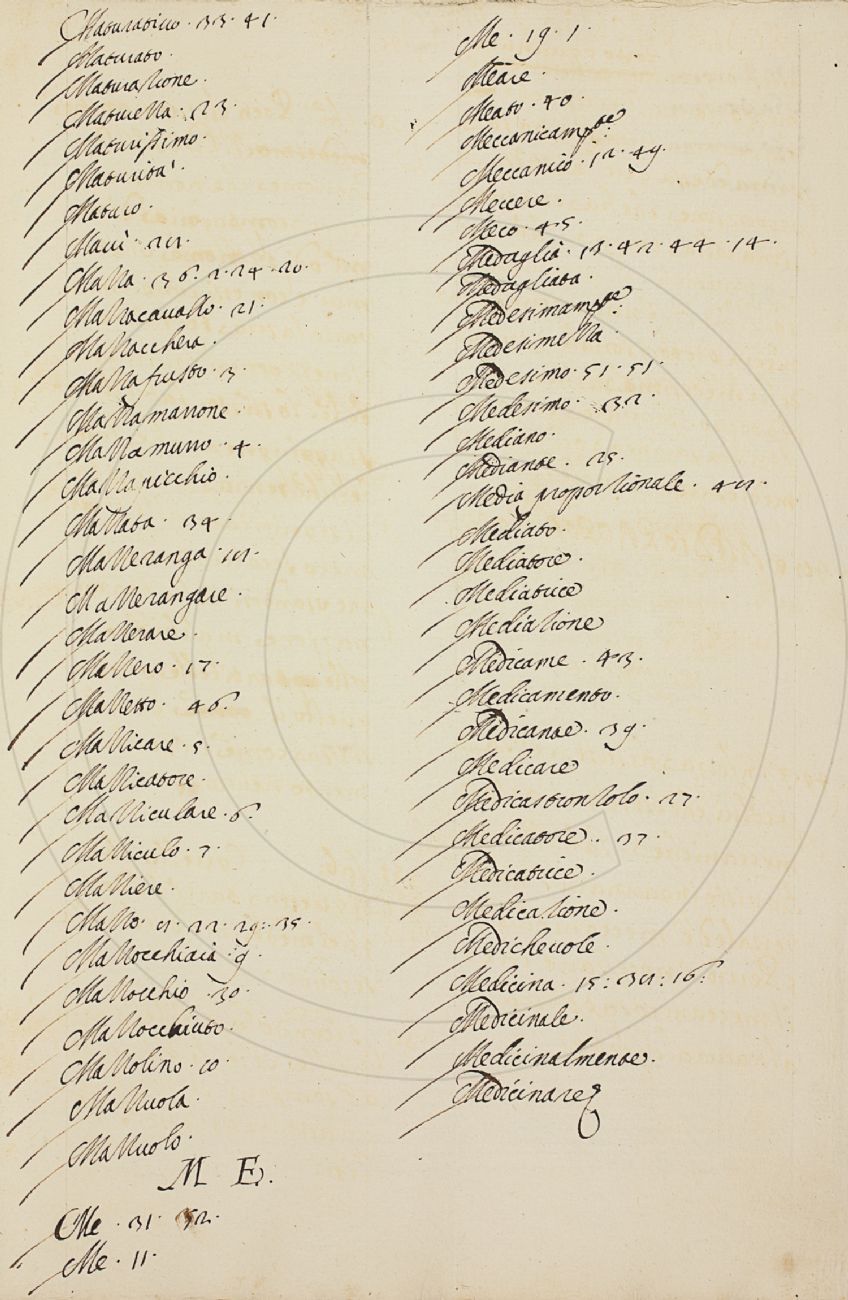 Maturativo · 33 · 41 ·
Maturato ·
Maturazione ·
Maturezza · 23 ·
Maturissimo ·
Maturità ·
Maturo ·
Mazza · 36 · 2 · 24 · 20 ·
Mazzacavallo · 21 ·
Mazzacchera ·
Mazzafrusto · 3 ·
Mazzamarrone ·
Mazzamurro · 4 ·
Mazzapicchio ·
Mazzata · 34 ·
Mazzeranga ·
Mazzerangare ·
Mazzerare ·
Mazzero · 17 ·
Mazzetto · 46 ·
Mazzicare · 5 ·
Mazzicatore ·
Mazziculare · 6 ·
Mazziculo · 7 ·
Mazziere ·
Mazzo · 22 · 29 · 35 ·
Mazzocchiaia · 9 ·
Mazzocchio · 30 ·
Mazzocchiuto ·
Mazzolino · 10 ·
Mazzuola ·
Mazzuolo ·
M E ·
Me · 31 · 32 ·
Me · 11 ·
Me · 19 · 1 ·
Meare ·
Meato · 40 ·
Meccanicam.te
Meccanico · 12 · 49 ·
Mecere ·
Meco · 45 ·
Medaglia · 13 · 42 · 44 · 14 ·
Medagliata ·
Medesimam.te
Medesimezza ·
Medesimo · 51 · 51 ·
Medesimo · 32 ·
Mediano ·
Mediante · 25 ·
Media proporzionale ·
Mediato ·
Mediatore ·
Mediatrice
Mediazione
Medicame · 43 ·
Medicamento ·
Medicante · 39 ·
Medicare
Medicastronzolo · 27 ·
Medicatore · 37 ·
Medicatrice ·
Medicazione ·
Medichevole ·
Medicina · 15 : 16 :
Medicinale ·
Medicinalmente ·
Medicinare